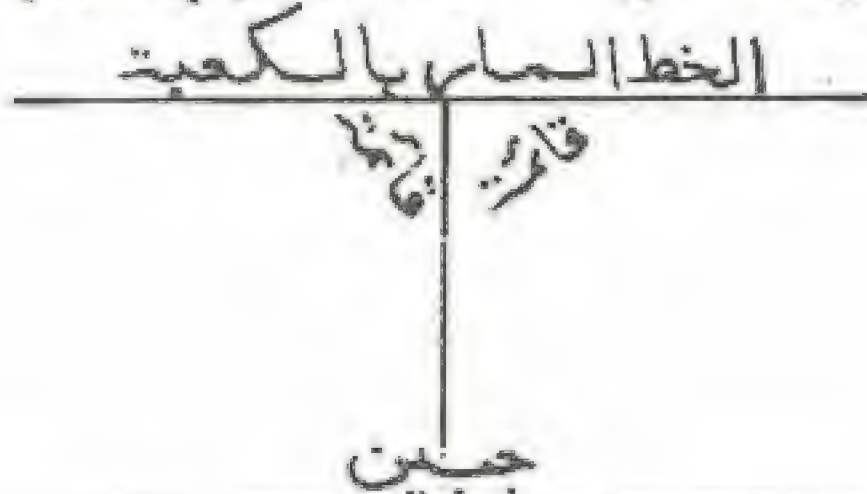 الخط المار بالكعبة
قائمة
قائمة
جبين